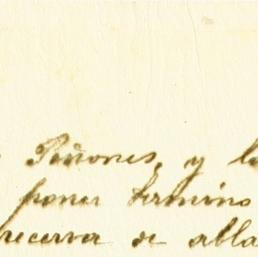 Piñones, y la
poner termino
recerva de abla